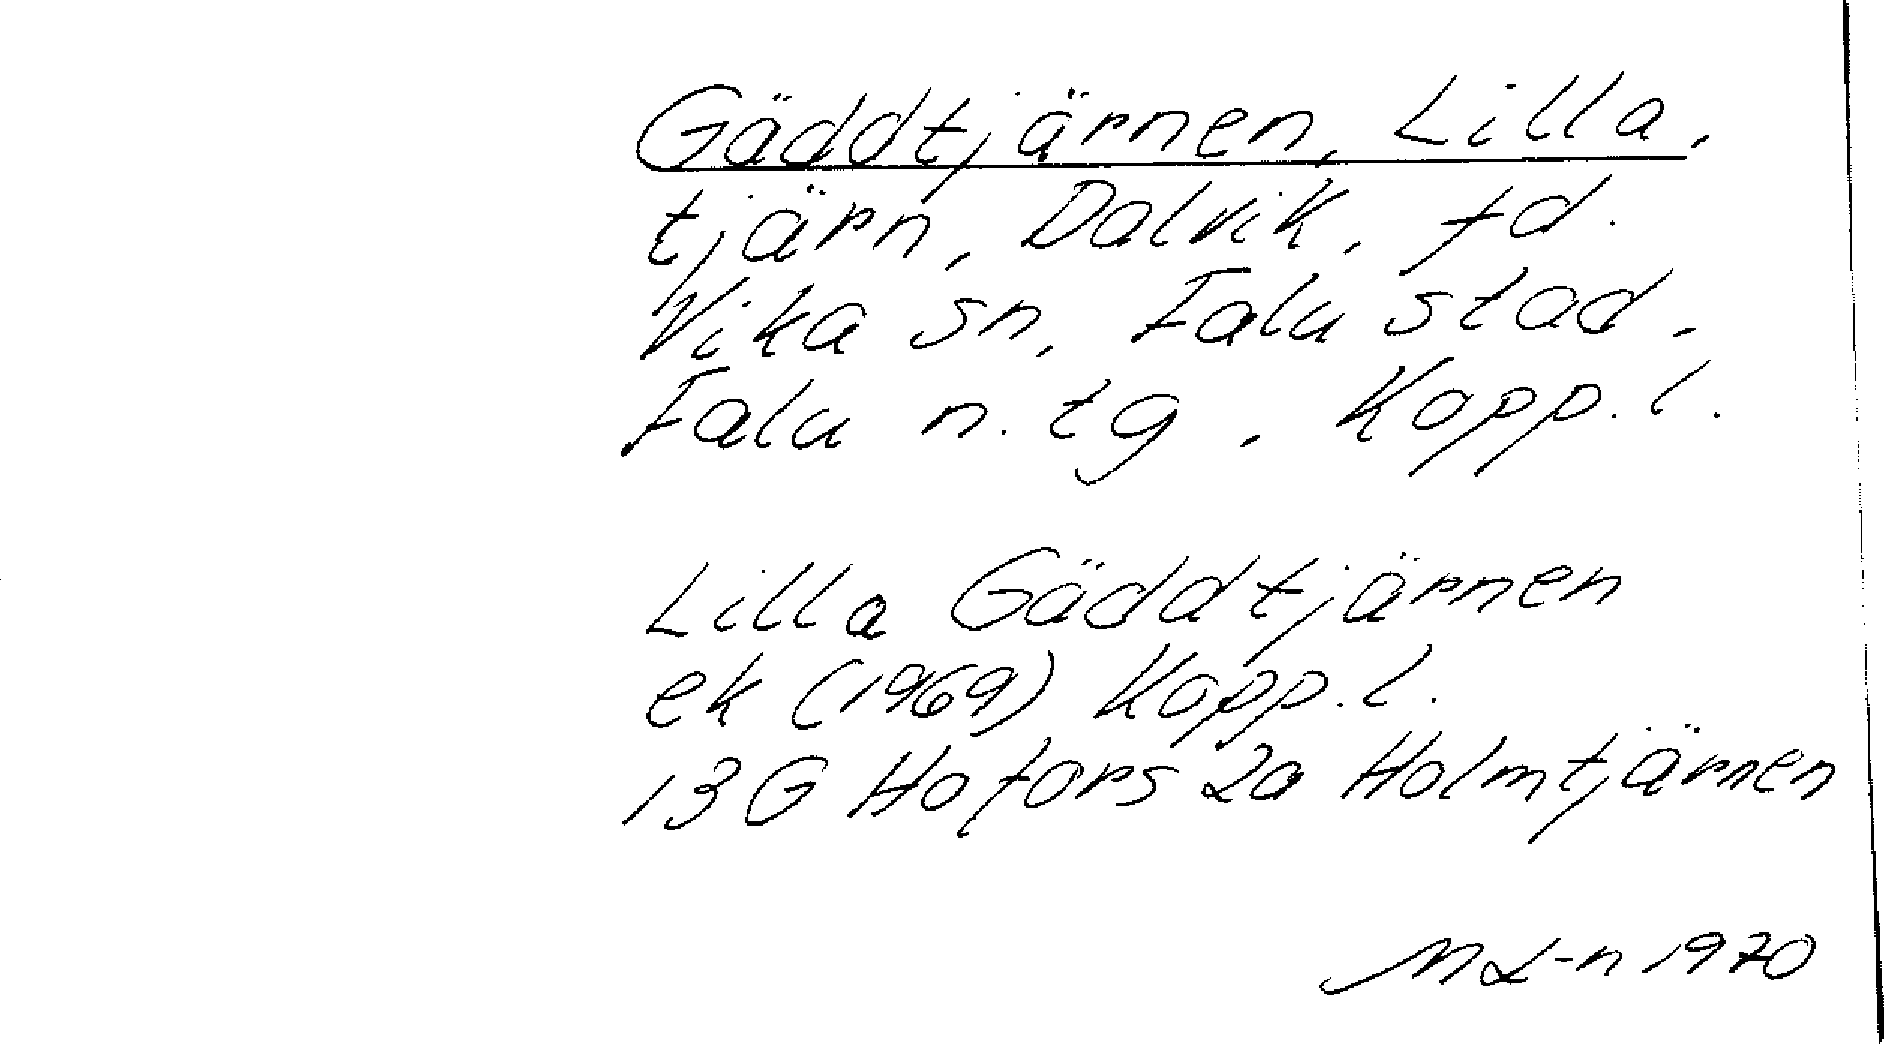 Gäddtjärnen, Lilla,
tjärn, Dalvik, fd.
Vika sn, Falu stad,
Falu n. tg, Kopp. l.
Lilla Gäddtjärnen
ek (1969) Kopp. l.
13G Hofors 2a Holmtjärnen
M L-n 1970